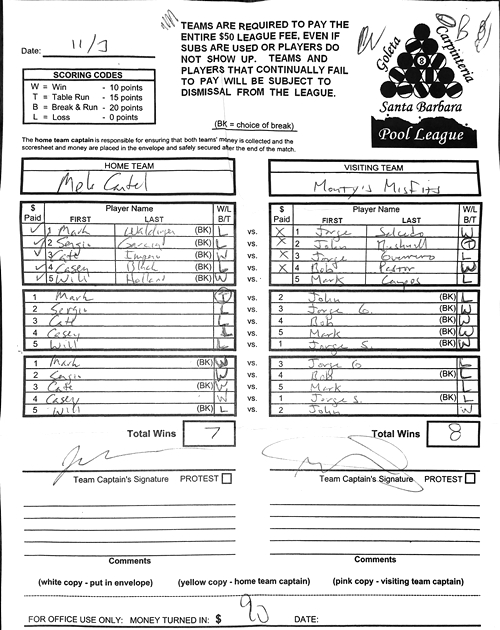 Date: 11/3
TEAMS ARE REQUIRED TO PAY THE
ENTIRE $50 LEAGUE FEE, EVEN IF
SUBS ARE USED OR PLAYERS DO
NOT SHOW UP. TEAMS AND
PLAYERS THAT CONTINUALLY FAIL
TO PAY WILL BE SUBJECT TO
DISMISSAL FROM THE LEAGUE.
(BK = choice of break)
SCORING CODES
W = Win - 10 points
T = Table Run - 15 points
B = Break & Run - 20 points
L = Loss - 0 points
Goleta
Carpinteria
8
Santa Barbara
Pool League
The home team captain is responsible for ensuring that both teams' money is collected and the
scoresheet and money are placed in the envelope and safely secured after the end of the match.
HOME TEAM
Mole Cartel
VISITING TEAM
Monty's Misfits
$ Paid Player Name FIRST LAST W/L B/T
$ Paid Player Name FIRST LAST W/L B/T
✓ 1 Mark (BK) L vs. X 1 Jorge Salcedo W
✓ 2 Sergio Garcia (BK) L vs. X 2 John T
✓ 3 (BK) W vs. X 3 Jorge Guerrero L
✓ 4 Casey (BK) L vs. X 4 Bob Pastor W
✓ 5 Will Holland (BK) W vs. 5 Mark Campos L
1 Mark T vs. 2 John (BK) L
2 Sergio L vs. 3 Jorge G. (BK) W
3 L vs. 4 Bob (BK) W
4 Casey L vs. 5 Mark (BK) W
5 Will L vs. 1 Jorge S. (BK) W
1 Mark (BK) W vs. 3 Jorge G L
2 Sergio (BK) W vs. 4 Bob L
3 (BK) W vs. 5 Mark L
4 Casey (BK) W vs. 1 Jorge S. L
5 Will (BK) L vs. 2 John W
Total Wins 7
Total Wins 8
Team Captain's Signature PROTEST
Team Captain's Signature PROTEST
Comments
Comments
(white copy - put in envelope) (yellow copy - home team captain) (pink copy - visiting team captain)
FOR OFFICE USE ONLY: MONEY TURNED IN: $ 90 DATE: